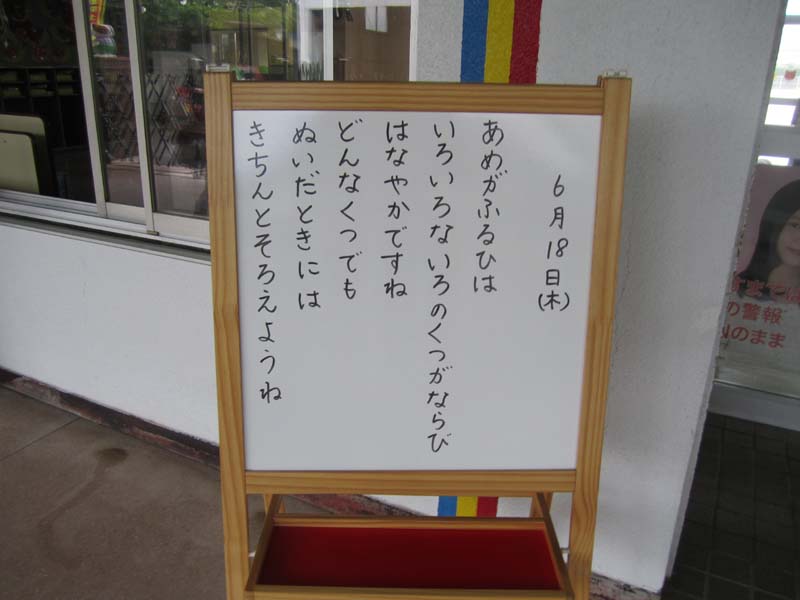 6月18日(木)
あめがふるひは
いろいろないろのくつがならび
はなやかですね
どんなくつでも
ぬいだときには
きちんとそろえようね
の警報
のまま